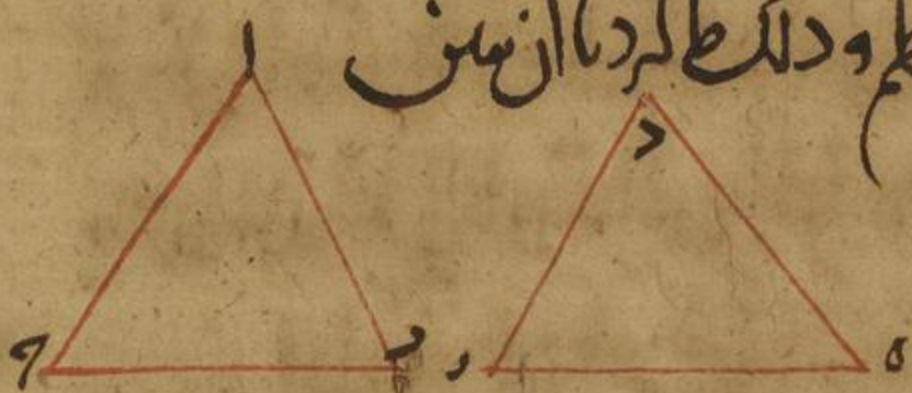 وذلك ما اردنا ان نبين
ا
د
ب
ه